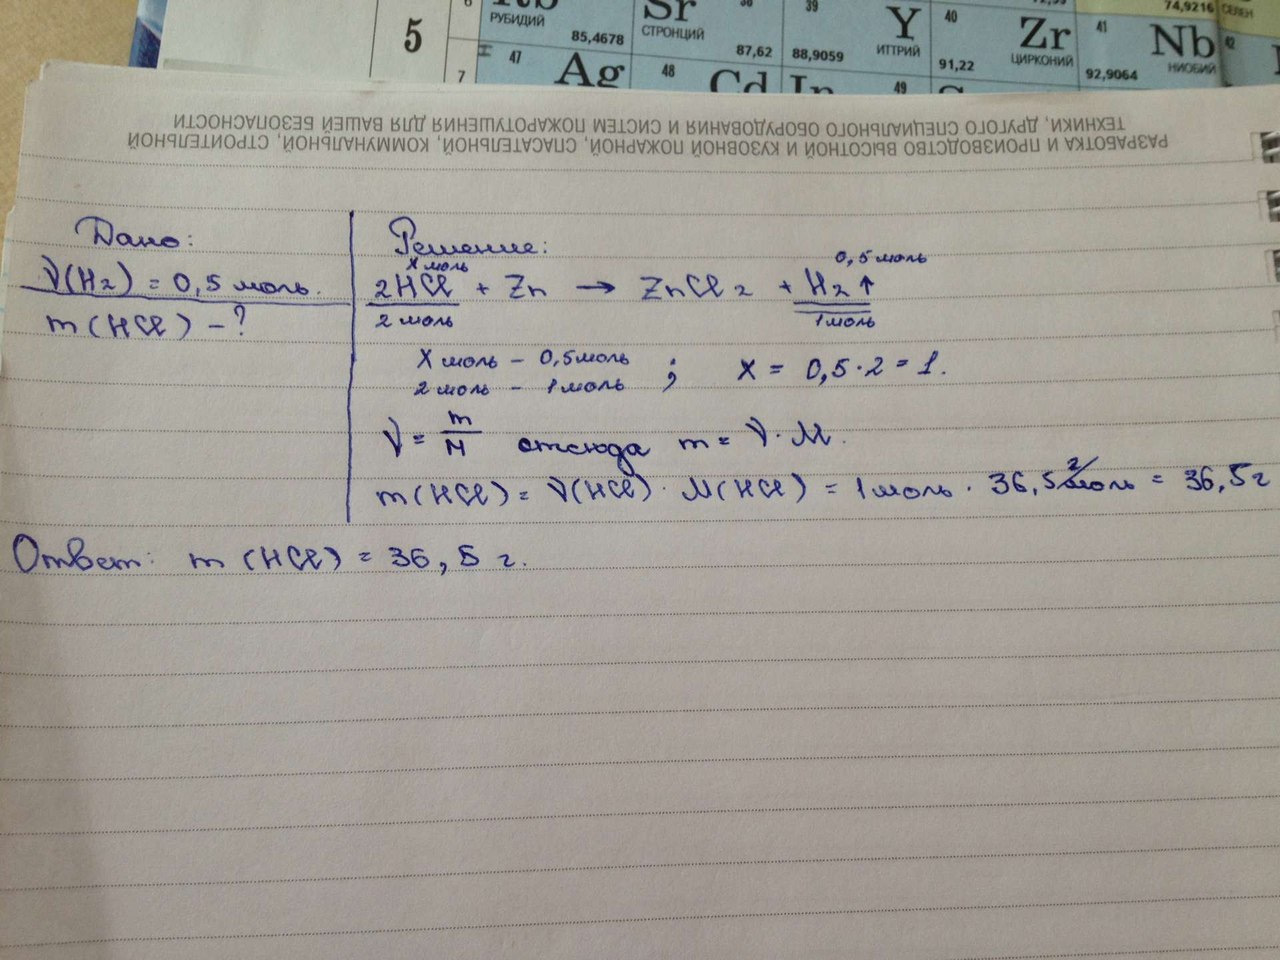 Rb Sr 38 39 Y 40 Zr 41 Nb 74,9216
РУБИДИЙ 85,4678 СТРОНЦИЙ 87,62 88,9059 ИТТРИЙ 91,22 ЦИРКОНИЙ 92,9064 НИОБИЙ 42
5
6
7
47 Ag 48 Cd In 49
РАЗРАБОТКА И ПРОИЗВОДСТВО ВЫСОТНОЙ И КУЗОВНОЙ ПОЖАРНОЙ, СПАСАТЕЛЬНОЙ, КОММУНАЛЬНОЙ, СТРОИТЕЛЬНОЙ
ТЕХНИКИ, ДРУГОГО СПЕЦИАЛЬНОГО ОБОРУДОВАНИЯ И СИСТЕМ ПОЖАРОТУШЕНИЯ ДЛЯ ВАШЕЙ БЕЗОПАСНОСТИ
Дано:
ν(H₂) = 0,5 моль.
m (HCl) - ?
Решение:
x моль 0,5 моль
2HCl + Zn → ZnCl₂ + H₂↑
2 моль 1 моль
x моль – 0,5 моль
2 моль – 1 моль ; x = 0,5 · 2 = 1.
ν = m/M отсюда m = ν · M.
m (HCl) = ν(HCl) · M(HCl) = 1 моль · 36,5 г/моль = 36,5 г
Ответ: m (HCl) = 36,5 г.